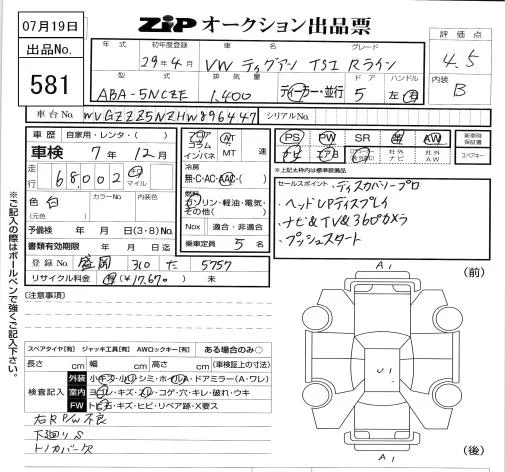 07月19日
ZiP オークション出品票
出品No.
581
年式 初年度登録 車名 グレード
29年4月 VW ティグアン TSI Rライン
型式 排気量 ドア ハンドル
ABA-5NCZE 1,400 ディーラー・並行 5 左・右
評価点
4.5
内装
B
車台No. WVGZZZ5NZHW896447 シリアルNo.
車歴 自家用・レンタ・( )
車検 7年12月
走行 68,002 km マイル
色 白 カラーNo. 内装色
(元色)
予備検 年 月 日(3・8)No.
書類有効期限 年 月 日迄
登録No. 盛岡 310 た 5757
リサイクル料金 有(¥17,670) 未
フロア コラム インパネ
AT MT 速
冷房
無・C・AC・AAC・( )
燃料
ガソリン・軽油・電気・その他( )
Nox 適合・非適合
乗車定員 5 名
PS PW SR 革 AW
ナビ エアB 社外ナビ 社外AW
新車時保証書
スペアキー
※上記太枠内は標準装備品
セールスポイント
・ディスカバリープロ
・ヘッドUPディスプレイ
・ナビ&TV&360°カメラ
・プッシュスタート
※ご記入の際はボールペンで強くご記入下さい。
[注意事項]
スペアタイヤ[有] ジャッキ工具[有] AWロックキー[有] ある場合のみ○
長さ cm 幅 cm 高さ cm (車検証上の寸法)
検査記入
外装 小キズ・小凹・シミ・ホイールA・ドアミラー(A・ワレ)
室内 ヨゴレ・キズ・スレ・コゲ・穴・キレ・破れ・ウキ
FW トビ石・キズ・ヒビ・リペア跡・X要ス
右R P/W不良
下廻りS
トノカバー欠
(前)
A1
U1
A1
(後)